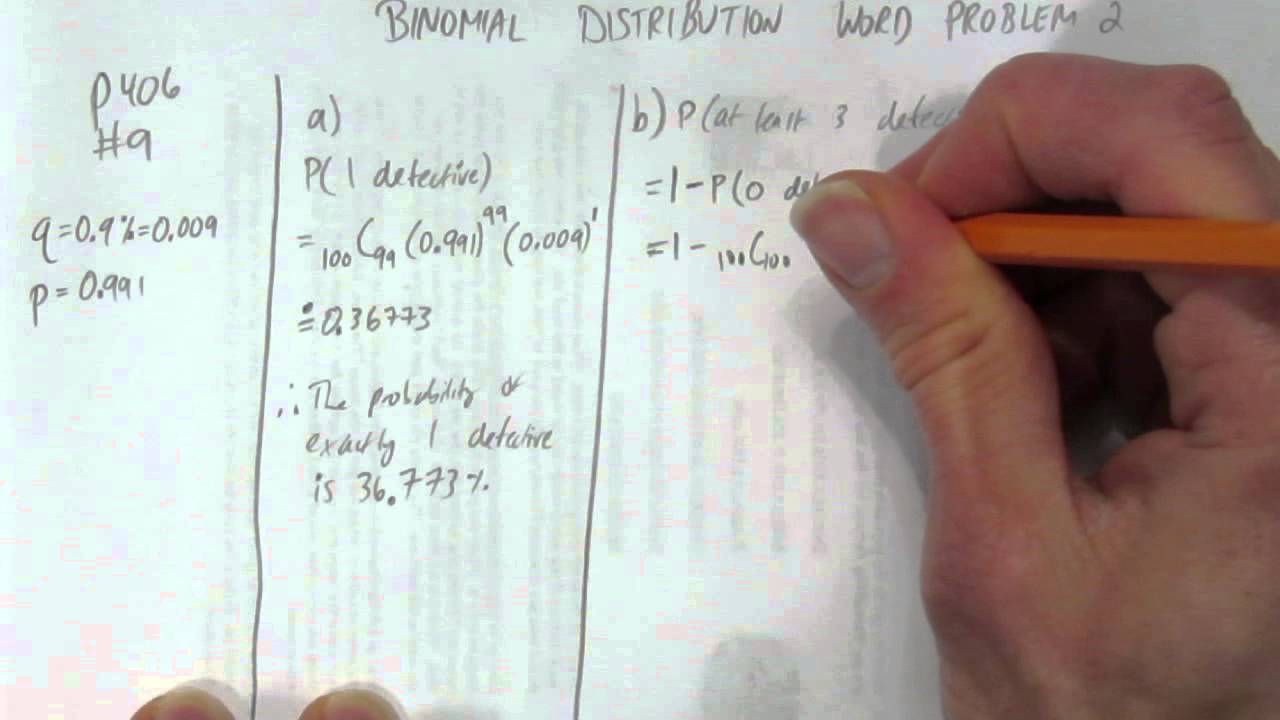 BINOMIAL DISTRIBUTION WORD PROBLEM 2
p406
#9
q=0.9%=0.009
p=0.991
a)
P(1 detective)
= ₁₀₀C₉₉ (0.991)⁹⁹ (0.009)¹
≐0.36773
∴ The probability of
exactly 1 detective
is 36.773%.
b) P(at least 3
=1-P(0
=1-₁₀₀C₁₀₀